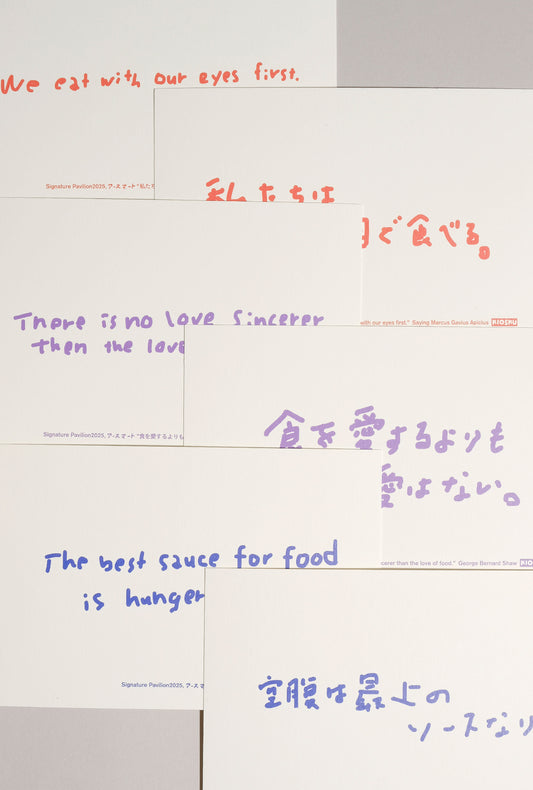 We eat with our eyes first.
Signature Pavilion2025, アースマート "私たち
私たちは
で食べる。
with our eyes first." Saying Marcus Gavius Apicius KIOSHU
There is no love sincerer
then the love
Signature Pavilion2025, アースマート "食を愛するよりも
食を愛するよりも
愛はない。
cerer than the love of food." George Bernard Shaw KIO
The best sauce for food
is hunger
Signature Pavilion2025, アースマ
空腹は最上の
ソースなり